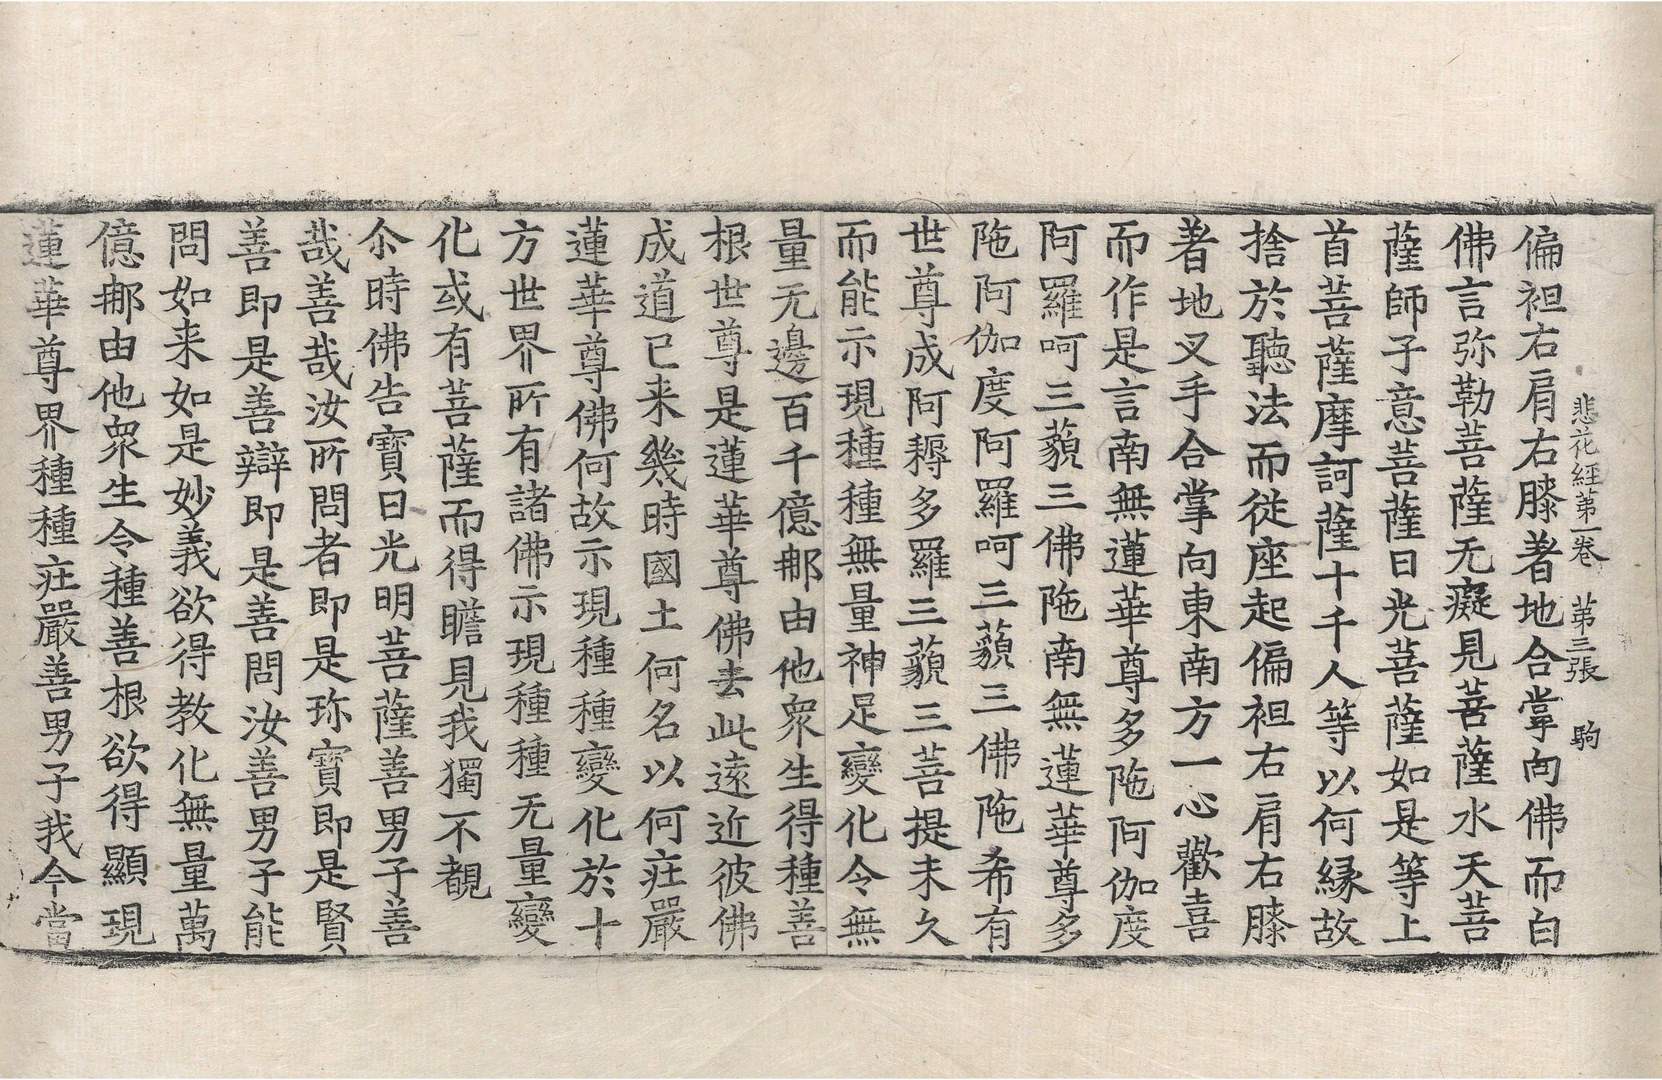 悲花經第一卷 第三張 駒
偏袒右肩右膝著地合掌向佛而白
佛言弥勒菩薩无癡見菩薩水天菩
薩師子意菩薩日光菩薩如是等上
首菩薩摩訶薩十千人等以何緣故
捨於聽法而從座起偏袒右肩右膝
著地叉手合掌向東南方一心歡喜
而作是言南無蓮華尊多陁阿伽度
阿羅呵三藐三佛陁南無蓮華尊多
陁阿伽度阿羅呵三藐三佛陁希有
世尊成阿耨多羅三藐三菩提未久
而能示現種種無量神足變化令無
量无邊百千億那由他衆生得種善
根世尊是蓮華尊佛去此遠近彼佛
成道已来幾時國土何名以何庄嚴
蓮華尊佛何故示現種種變化於十
方世界所有諸佛示現種種无量變
化或有菩薩而得瞻見我獨不覩
尒時佛告寶日光明菩薩善男子善
哉善哉汝所問者即是珎寶即是賢
善即是善辯即是善問汝善男子能
問如来如是妙義欲得教化無量萬
億那由他衆生令種善根欲得顯現
蓮華尊界種種庄嚴善男子我今當